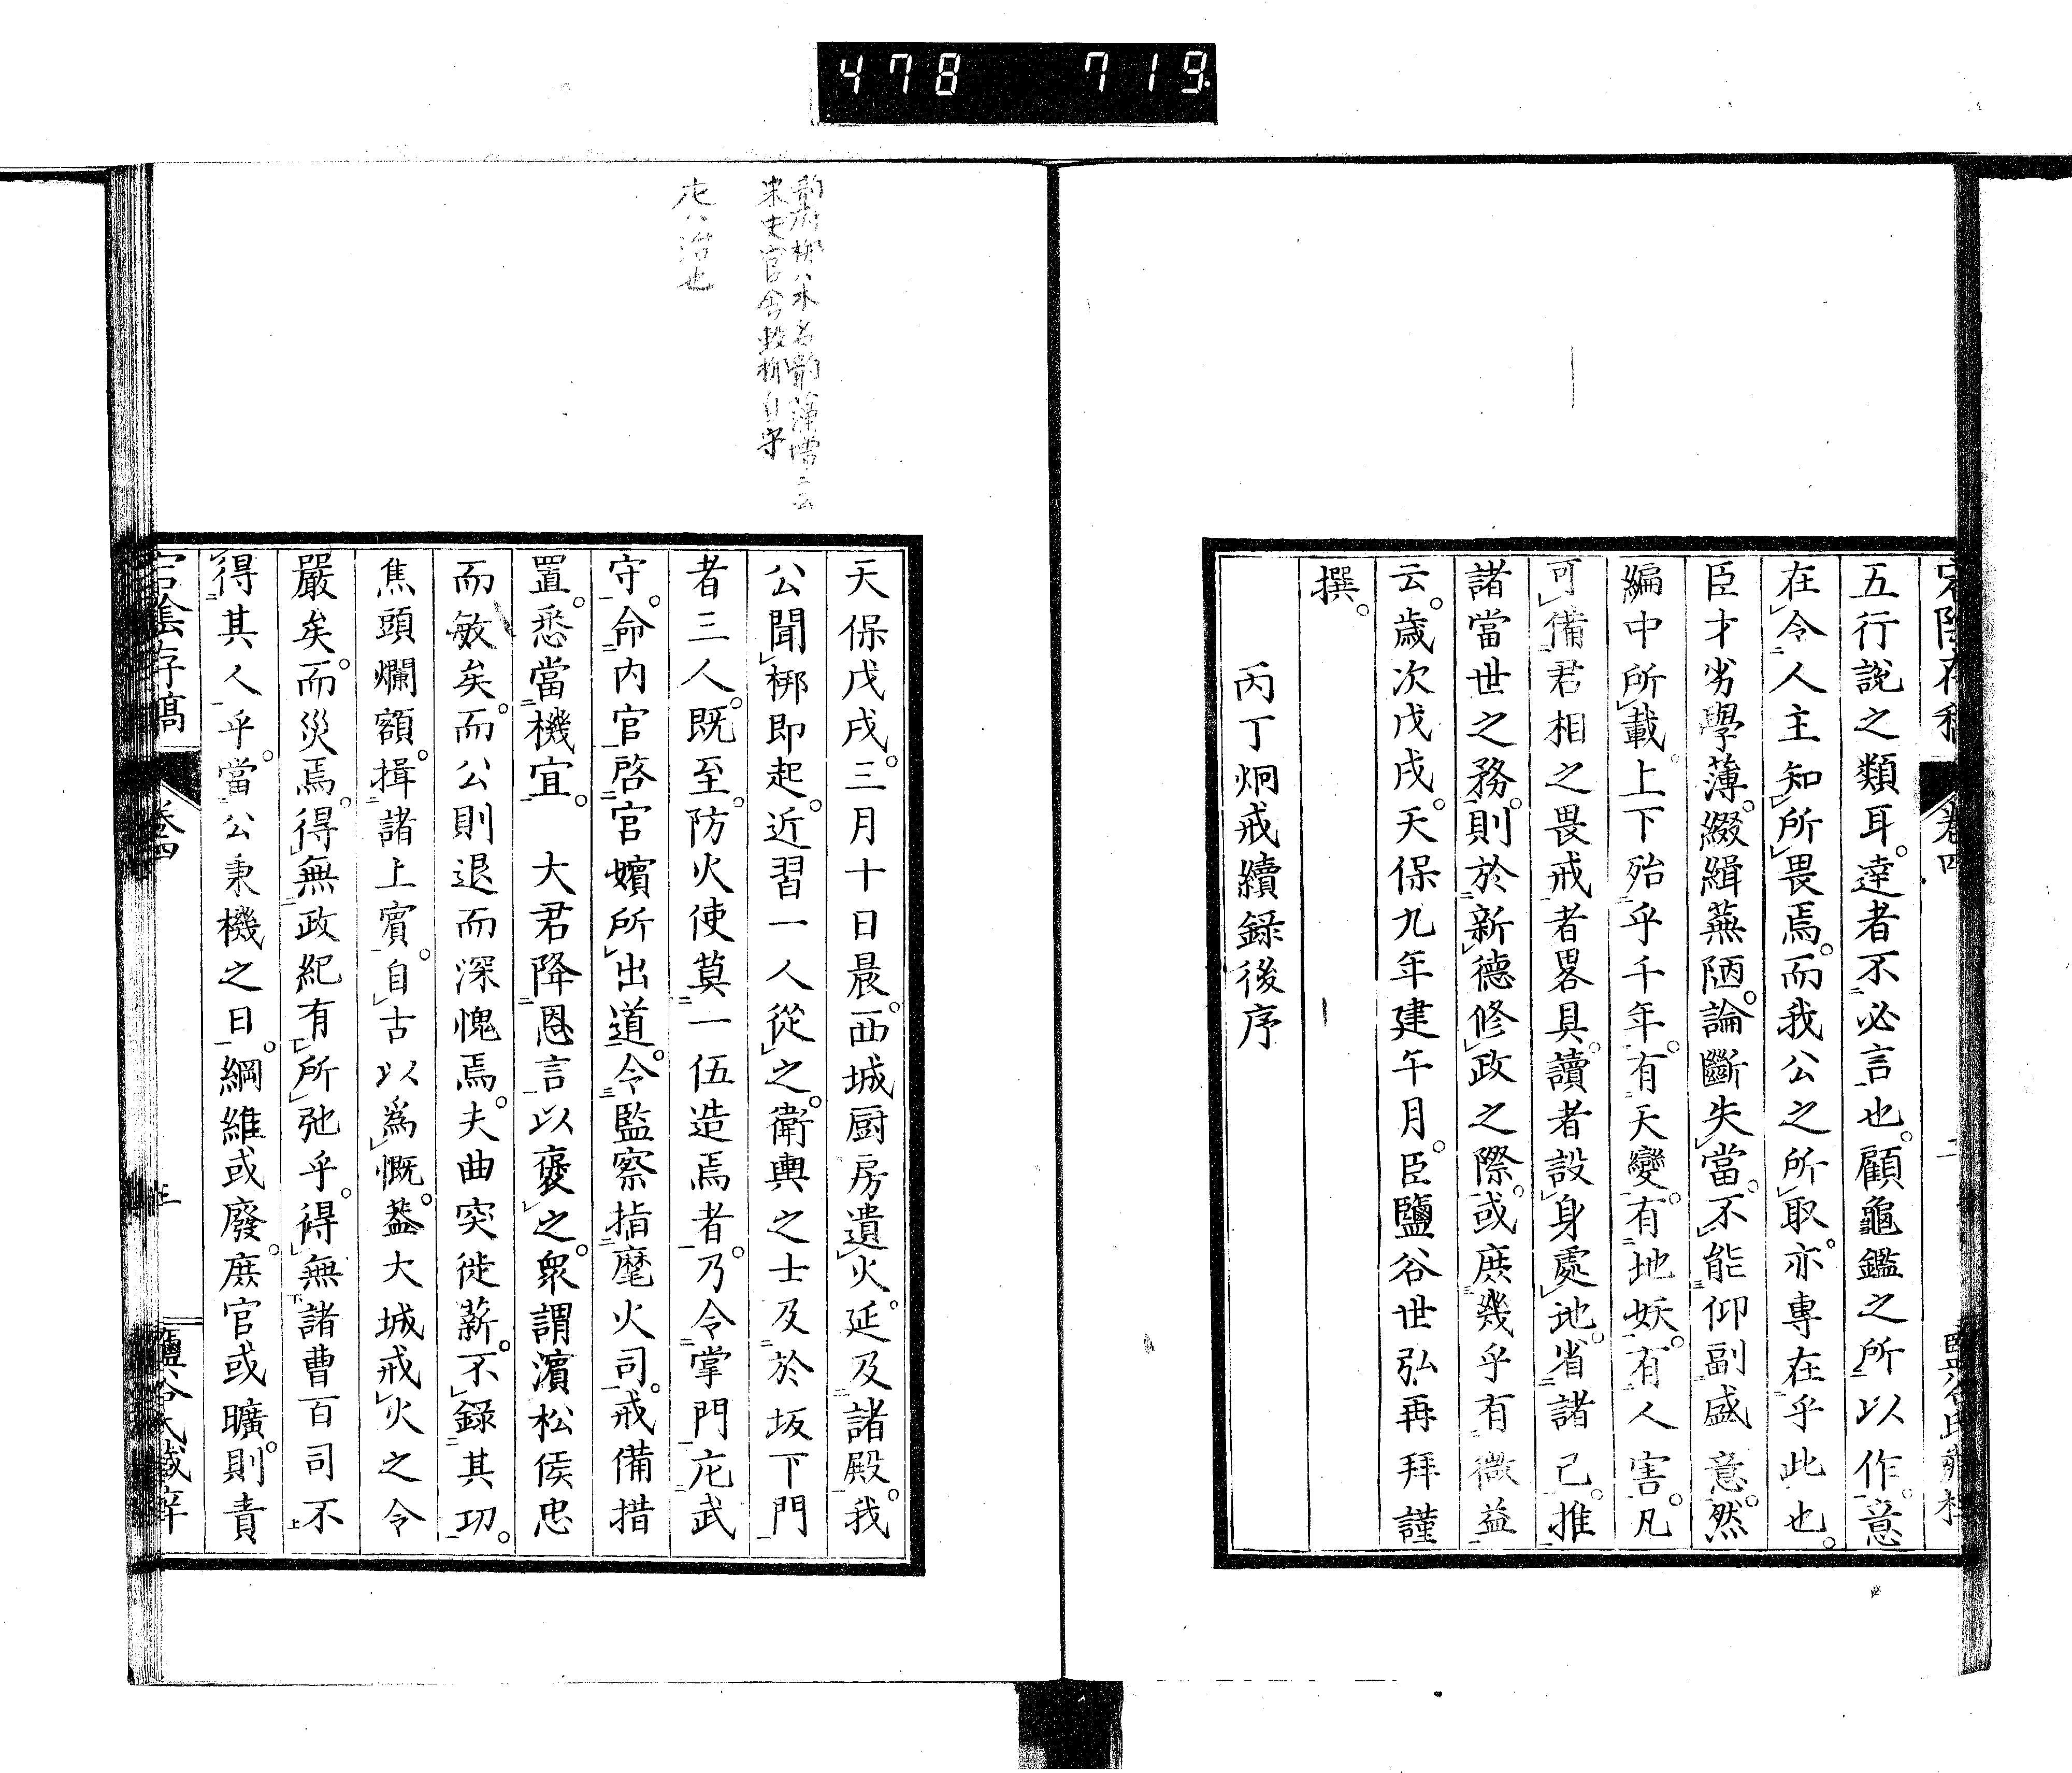 478 719.
宕陰存稿 卷四 二
五行說之類耳。達者不必言也。顧龜鑑之所以作。意
在令人主知所畏焉。而我公之所取。亦專在乎此也。
臣才劣學薄。綴緝蕪陋。論斷失當。不能仰副盛意。然
編中所載。上下殆乎千年。有天變。有地妖。有人害。凡
可備君相之畏戒者畧具。讀者設身處地。省諸己。推
諸當世之務。則於新德修政之際。或庶幾乎有微益
云。歲次戊戌。天保九年建午月。臣鹽谷世弘再拜謹
撰。
丙丁炯戒續録後序
韵府梆ハ木名韵藻増ニ云
宋史官舎数梆自守
庀ハ治也
天保戊戌。三月十日晨。西城厨房遺火。延及諸殿。我
公聞梆即起。近習一人從之。衛輿之士及於坂下門
者三人。既至。防火使莫一伍造焉者。乃令掌門庀武
守。命内官啓官嬪所出道。令監察指麾火司。戒備措
置。悉當機宜。 大君降恩言以褒之。衆謂濱松侯忠
而敏矣。而公則退而深愧焉。夫曲突徙薪。不録其功。
焦頭爛額。揖諸上賓。自古以爲慨。葢大城戒火之令
嚴矣。而災焉。得無政紀有所弛乎。得無諸曹百司不
得其人乎。當公秉機之日。綱維或廢。庶官或曠。則責
宕陰存稿 卷四 三 鹽谷氏藏梓